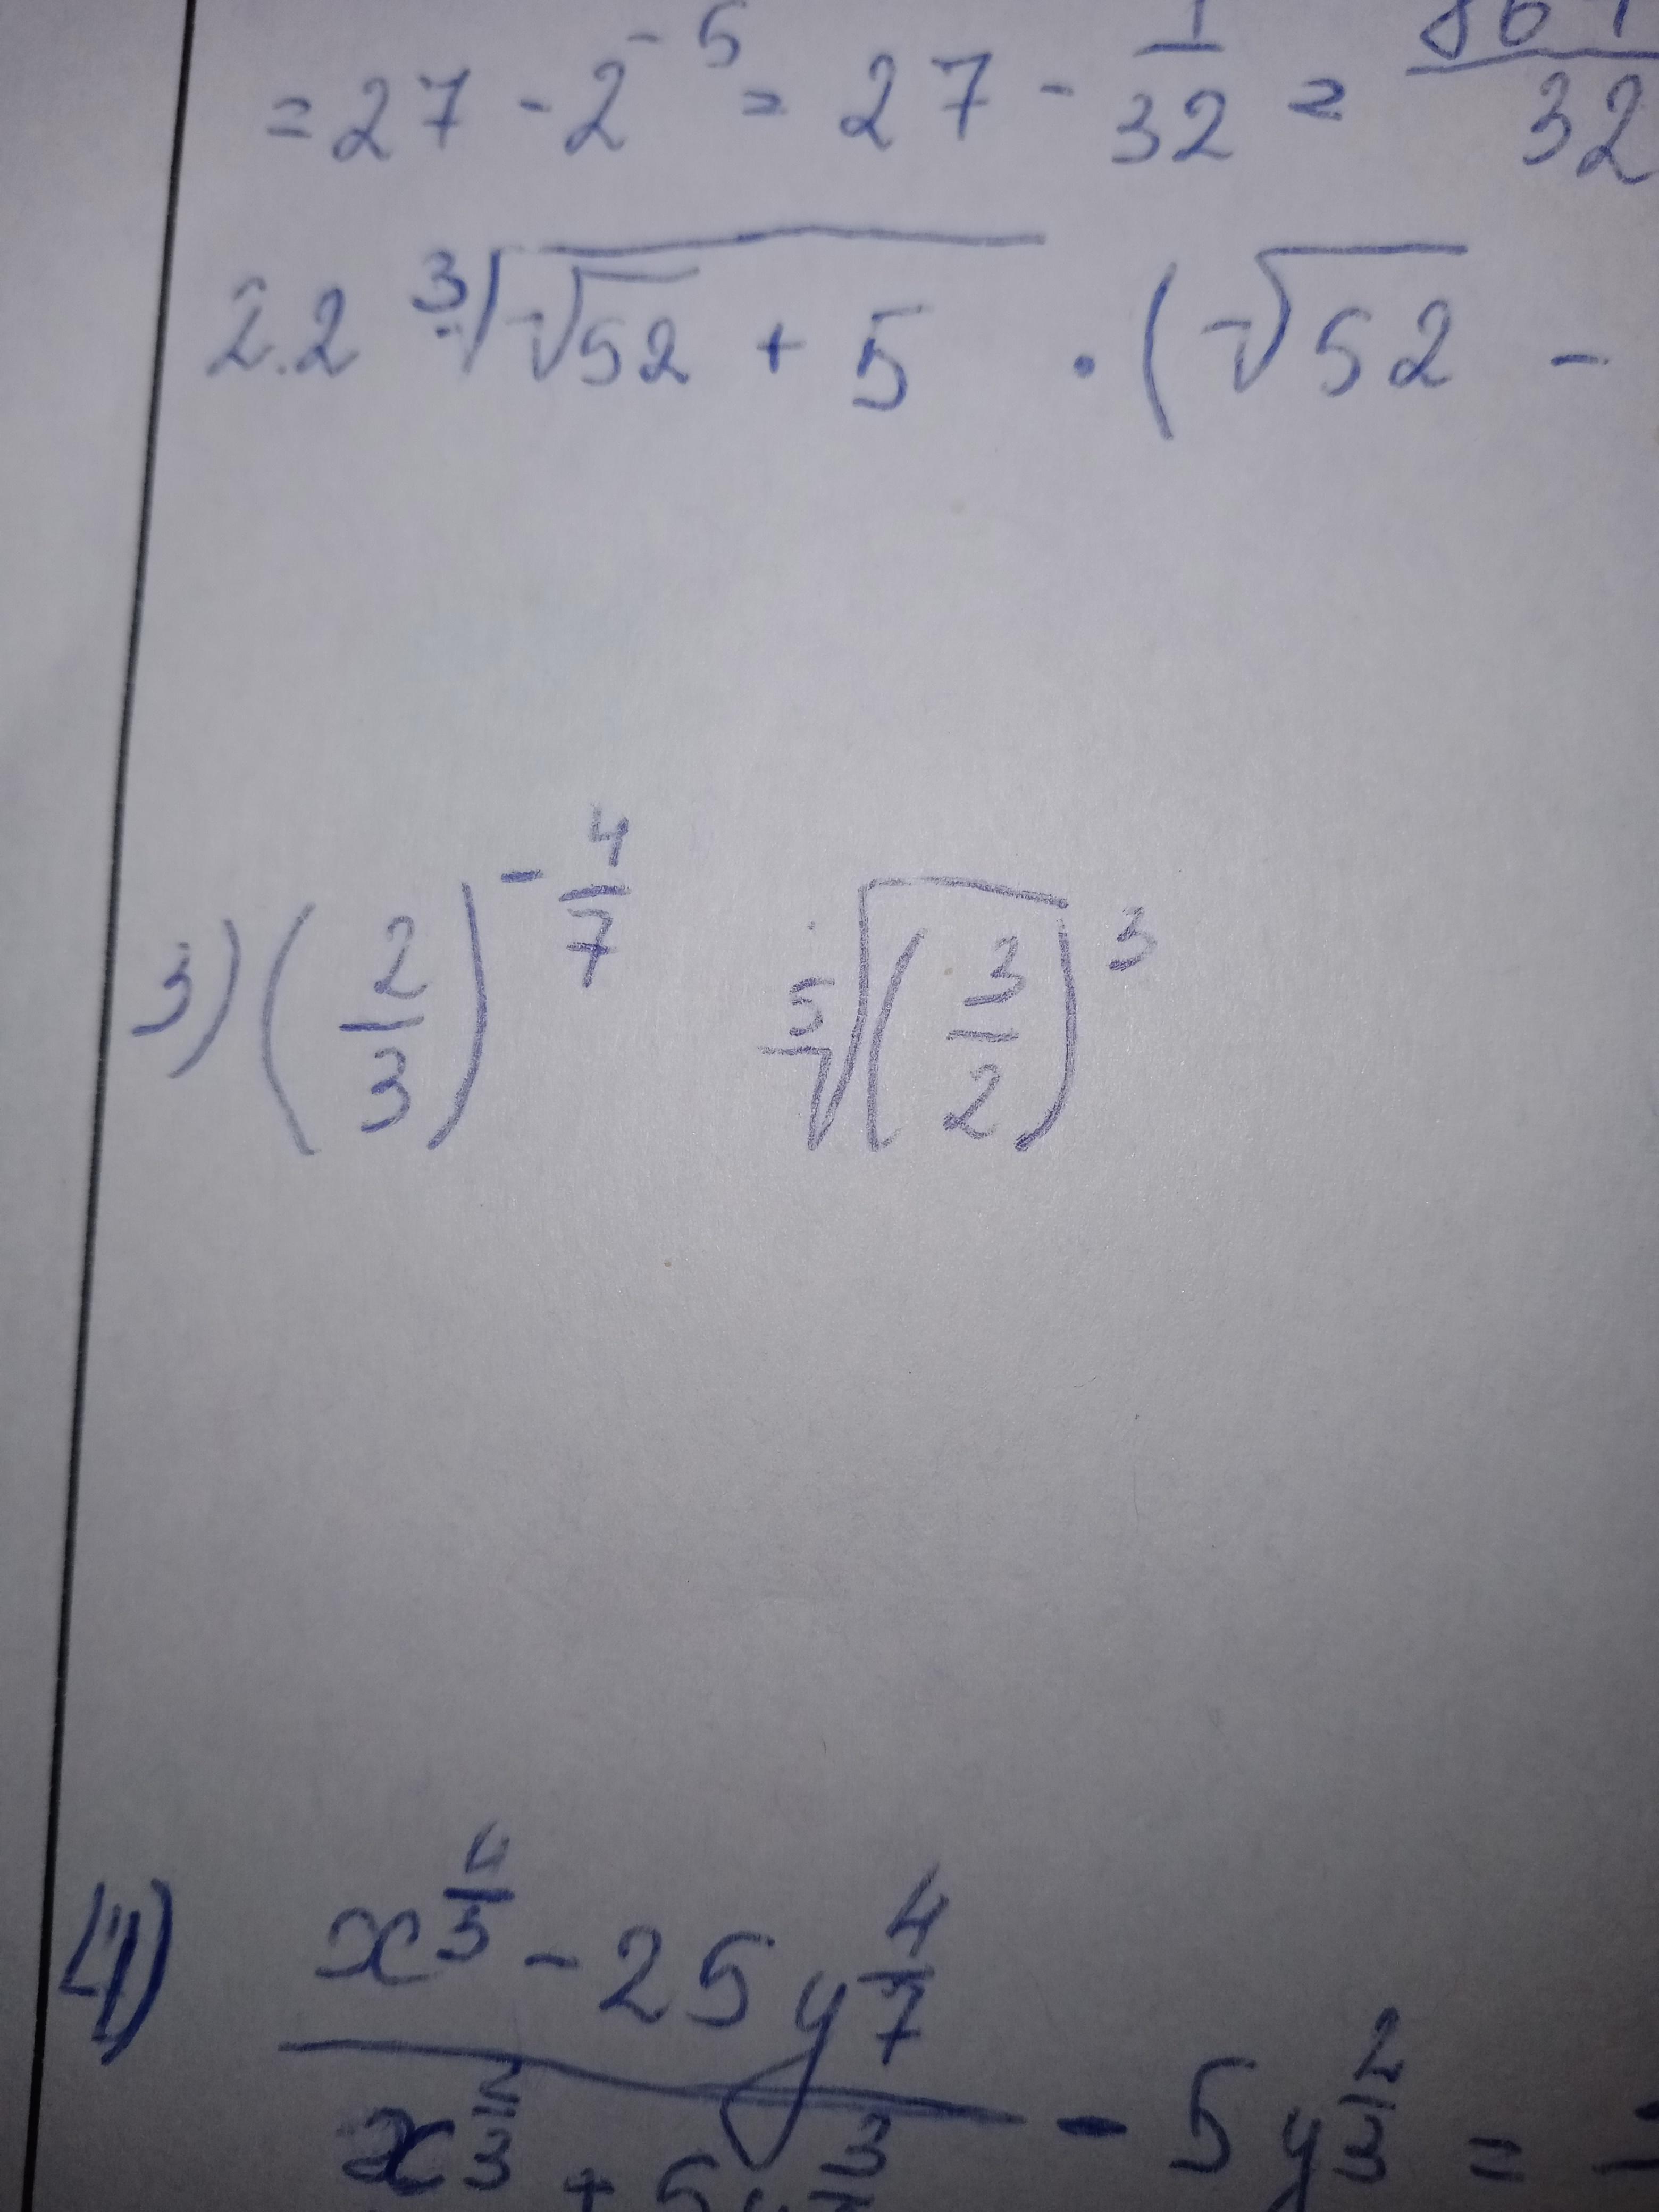 = 27 - 2^-5 = 27 - 1/32 = 32
2.2 ∛(√52 + 5) · (√52 -
3) (2/3)^(-4/7) ⁵√(3/2)^3
4) x^(4/3) - 25y^(4/7)
x^(2/3) + 5y - 5y^(2/3) =